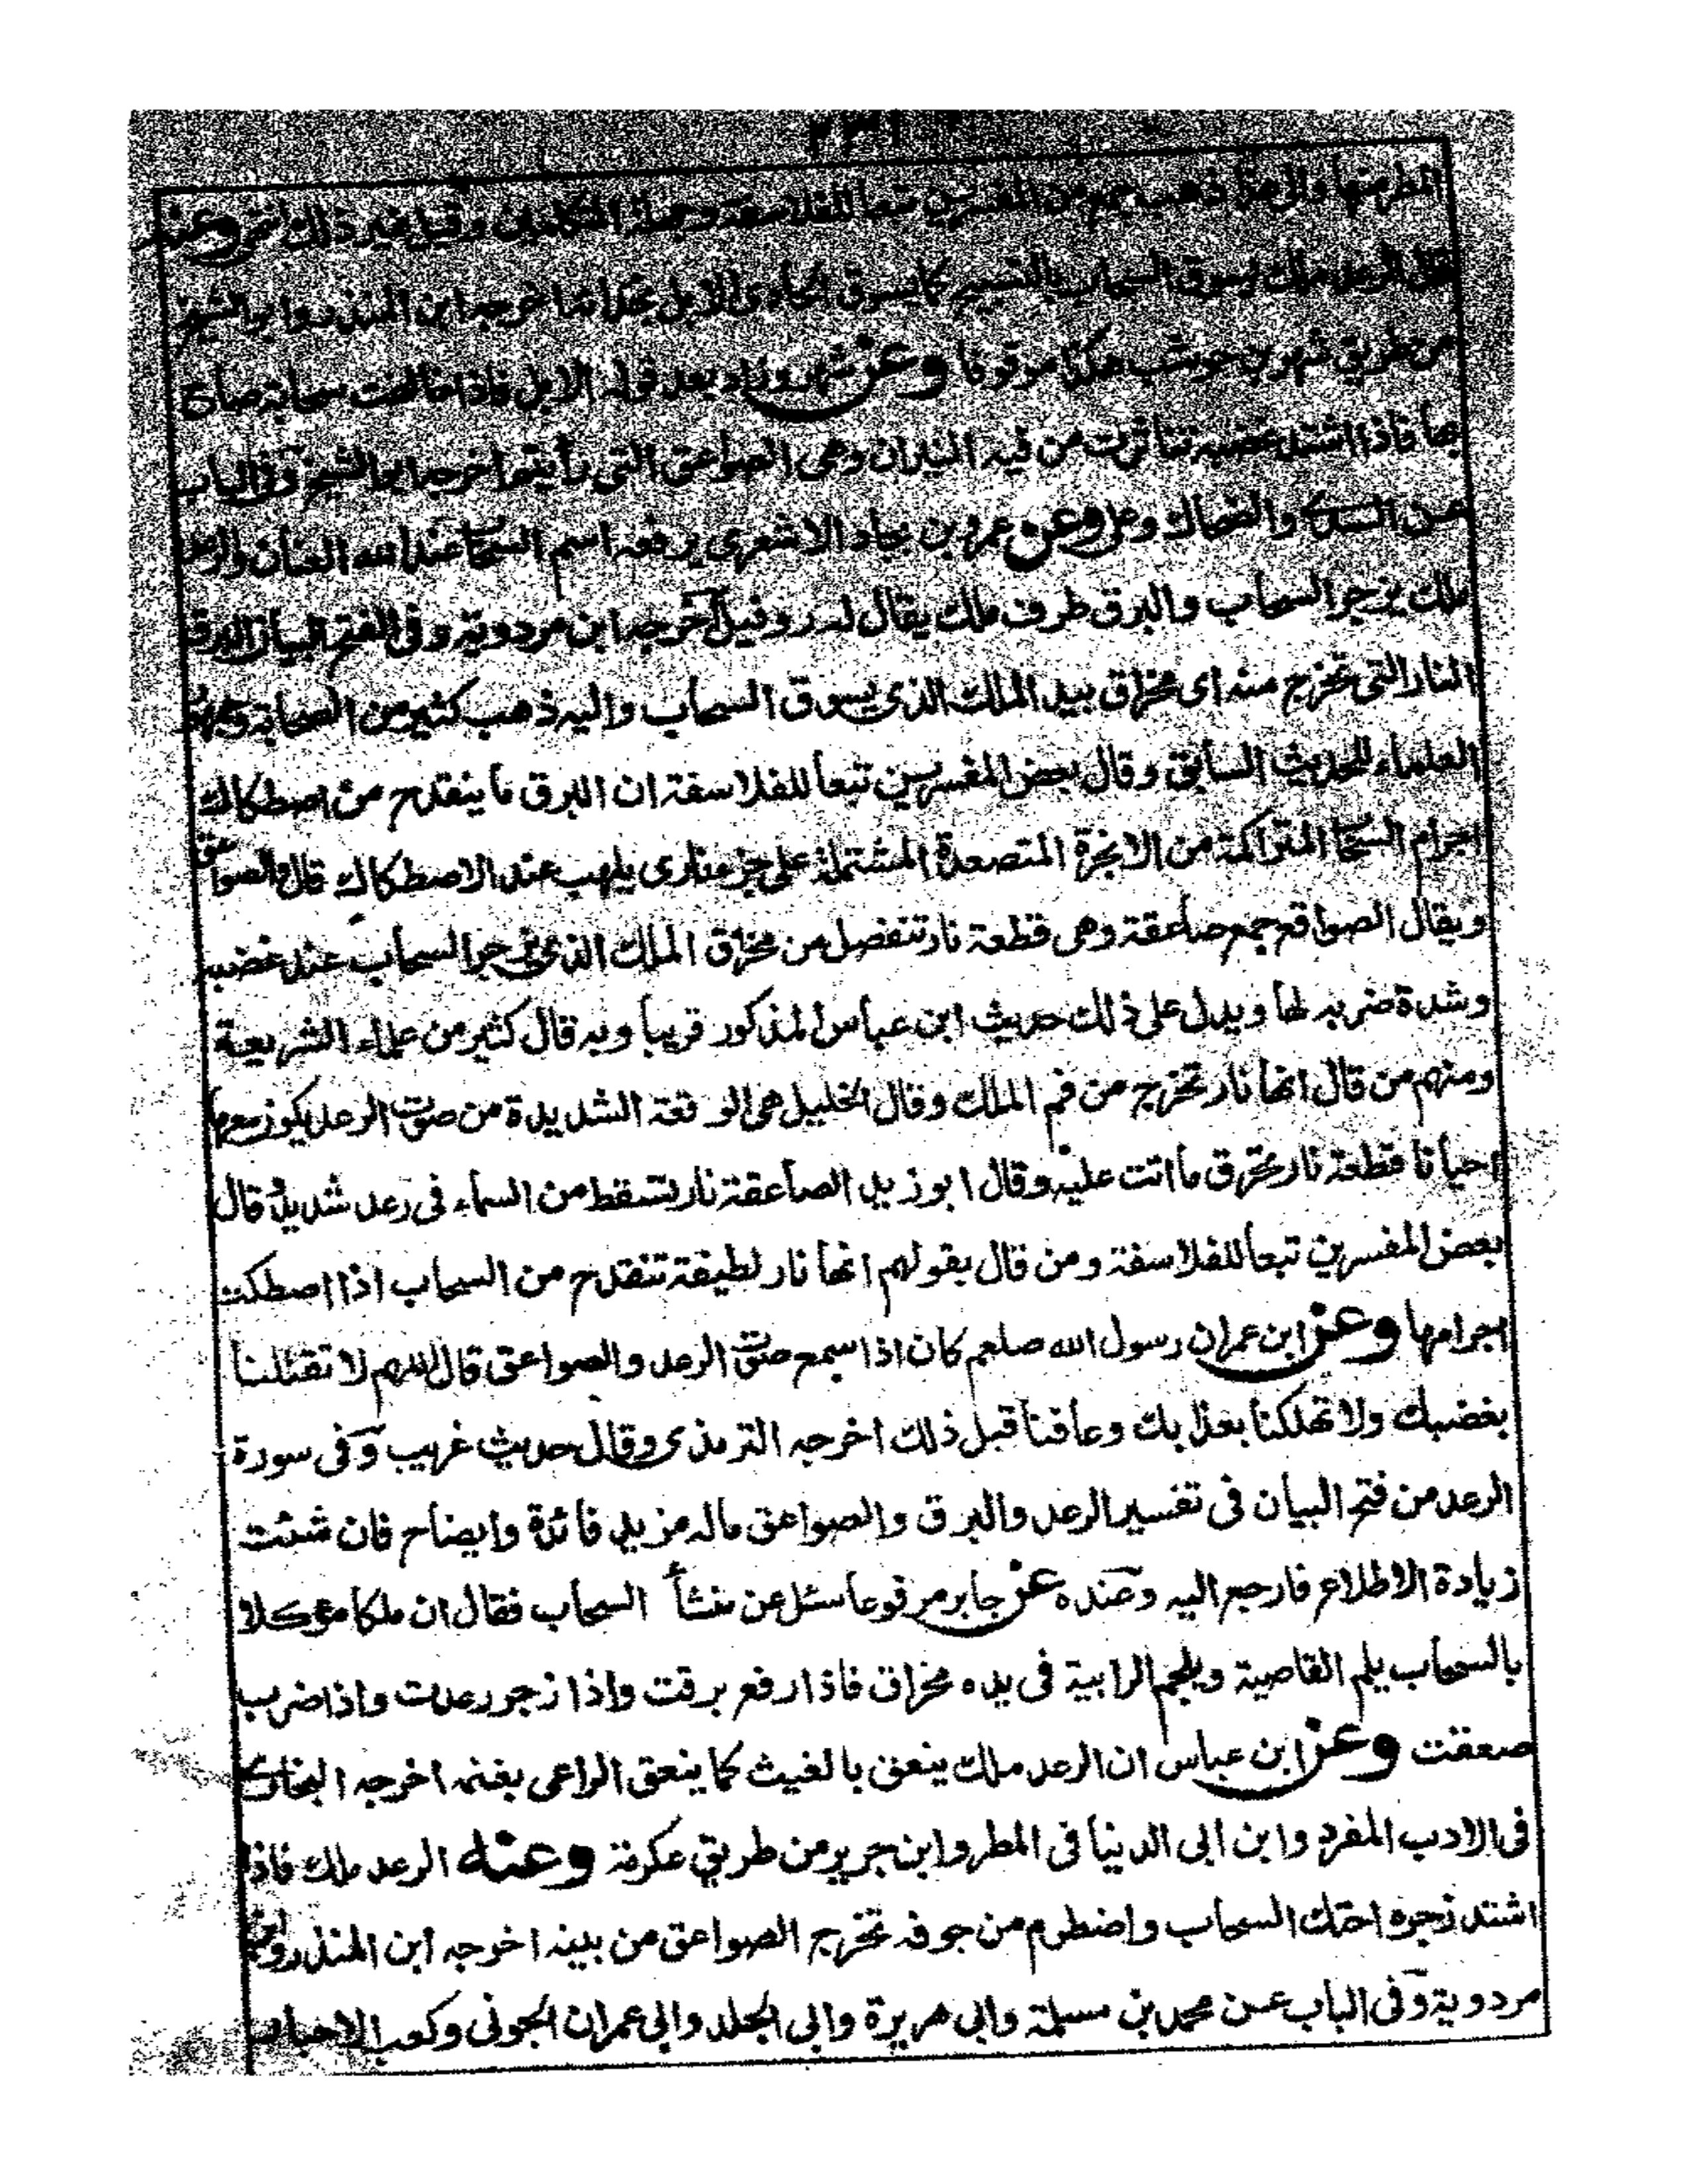 المطر منها والى هذا ذهب جمع من المفسرين تبعا للفلاسفة وجملة المتكلمين وقيل غير ذلك انتهى وعنه
قال الرعد ملك يسوق السحاب بالتسبيح كما يسوق الحادي الابل بحدائه اخرجه ابن المنذر وابو الشيخ
من طريق شهر بن حوشب هكذا موقوفا وعن شهر وزاد بعد قوله الابل فاذا خالفت سحابة صاح
بها فاذا اشتد غضبه تناثرت من فيه النيران وهى الصواعق التى رأيتم اخرجه ابو الشيخ وفى الباب
عن السدى والضحاك وعلى وعن عمرو بن بجاد الاشعرى يرفعه اسم السحاب عند الله العنان والرعد
ملك يزجر السحاب والبرق طرف ملك يقال له روفيل اخرجه ابن مردوية وفى الفتح البيان البرق
النار التى تخرج منه اى مخراق بيد الملك الذى يسوق السحاب واليه ذهب كثير من الصحابة وجمهور
العلماء للحديث السابق وقال بعض المفسرين تبعا للفلاسفة ان البرق ما ينقدح من اصطكاك
اجرام السحاب المتراكمة من الابخرة المتصعدة المشتملة على جزء نارى يلهب عند الاصطكاك قال والصواعق
ويقال الصواقع جمع صاعقة وهى قطعة نار تنفصل من مخراق الملك الذى يزجر السحاب عند غضبه
وشدة ضربه لها ويدل على ذلك حديث ابن عباس المذكور قريبا وبه قال كثير من علماء الشريعة
ومنهم من قال انها نار تخرج من فم الملك وقال الخليل هى الوقعة الشديدة من صوت الرعد يكون معها
احيانا قطعة نار تحرق ما اتت عليه وقال ابو زيد الصاعقة نار تسقط من السماء فى رعد شديد وقال
بعض المفسرين تبعا للفلاسفة ومن قال بقولهم انها نار لطيفة تنقدح من السحاب اذا اصطكت
اجرامها وعن ابن عمر ان رسول الله صلعم كان اذا سمع صوت الرعد والصواعق قال اللهم لا تقتلنا
بغضبك ولا تهلكنا بعذابك وعافنا قبل ذلك اخرجه الترمذى وقال حديث غريب وفى سورة
الرعد من فتح البيان فى تفسير الرعد والبرق والصواعق ماله مزيد فائدة وايضاح فان شئت
زيادة الاطلاع فارجع اليه وعنده عن جابر مرفوعا سئل عن منشأ السحاب فقال ان ملكا موكلا
بالسحاب يلم القاصية ويلجم الرابية فى يده مخراق فاذا رفع برقت واذا زجر رعدت واذا ضرب
صعقت وعن ابن عباس ان الرعد ملك ينعق بالغيث كما ينعق الراعى بغنمه اخرجه البخارى
فى الادب المفرد وابن ابى الدنيا فى المطر وابن جرير من طريق عكرمة وعنه الرعد ملك فاذا
اشتد زجره احتك السحاب واضطرم من جوفه تخرج الصواعق من بينه اخرجه ابن المنذر وابن
مردوية وفى الباب عن محمد بن مسلمة وابى هريرة وابى الجلد وابى عمران الجونى وكعب الاحبار